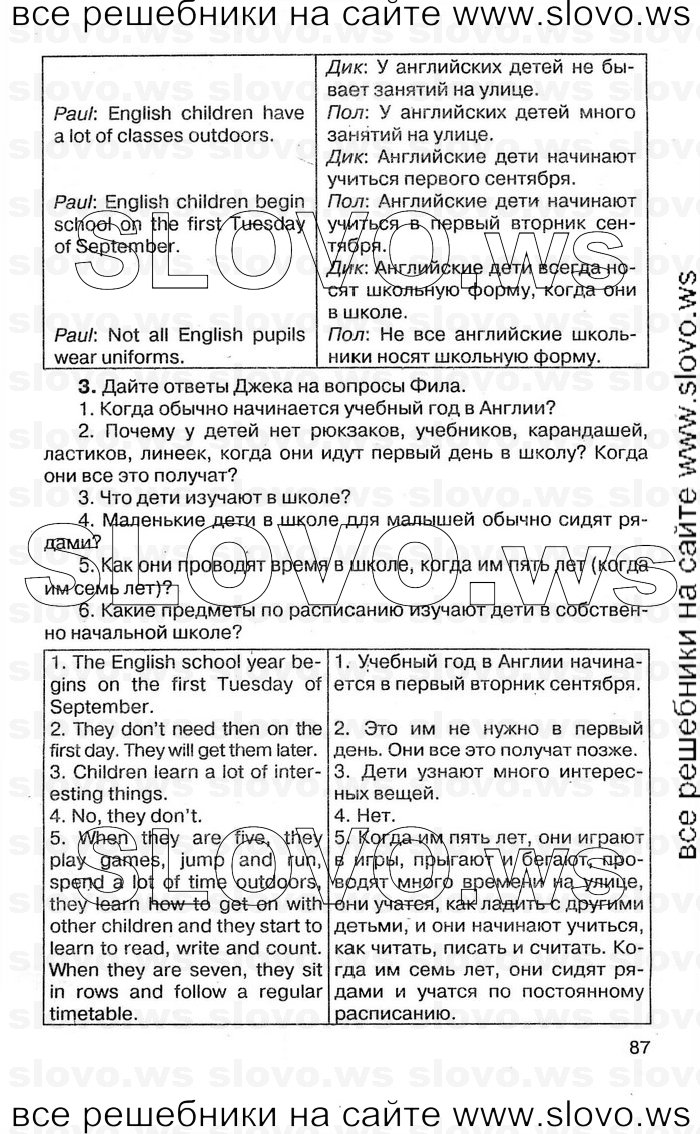 все решебники на сайте www.slovo.ws
Дик: У английских детей не бы-
вает занятий на улице.
Paul: English children have
a lot of classes outdoors.
Пол: У английских детей много
занятий на улице.
Дик: Английские дети начинают
учиться первого сентября.
Paul: English children begin
school on the first Tuesday
of September.
Пол: Английские дети начинают
учиться в первый вторник сен-
тября.
Дик: Английские дети всегда но-
сят школьную форму, когда они
в школе.
Paul: Not all English pupils
wear uniforms.
Пол: Не все английские школь-
ники носят школьную форму.
SLOVO.ws
3. Дайте ответы Джека на вопросы Фила.
1. Когда обычно начинается учебный год в Англии?
2. Почему у детей нет рюкзаков, учебников, карандашей,
ластиков, линеек, когда они идут первый день в школу? Когда
они все это получат?
3. Что дети изучают в школе?
4. Маленькие дети в школе для малышей обычно сидят ря-
дами?
5. Как они проводят время в школе, когда им пять лет (когда
им семь лет)?
6. Какие предметы по расписанию изучают дети в собствен-
но начальной школе?
SLOVO.ws
1. The English school year be-
gins on the first Tuesday of
September.
2. They don't need then on the
first day. They will get them later.
3. Children learn a lot of inter-
esting things.
4. No, they don't.
5. When they are five, they
play games, jump and run,
spend a lot of time outdoors,
they learn how to get on with
other children and they start to
learn to read, write and count.
When they are seven, they sit
in rows and follow a regular
timetable.
1. Учебный год в Англии начина-
ется в первый вторник сентября.
2. Это им не нужно в первый
день. Они все это получат позже.
3. Дети узнают много интерес-
ных вещей.
4. Нет.
5. Когда им пять лет, они играют
в игры, прыгают и бегают, про-
водят много времени на улице,
они учатся, как ладить с другими
детьми, и они начинают учиться,
как читать, писать и считать. Ко-
гда им семь лет, они сидят ря-
дами и учатся по постоянному
расписанию.
SLOVO.ws
87
все решебники на сайте www.slovo.ws
все решебники на сайте www.slovo.ws